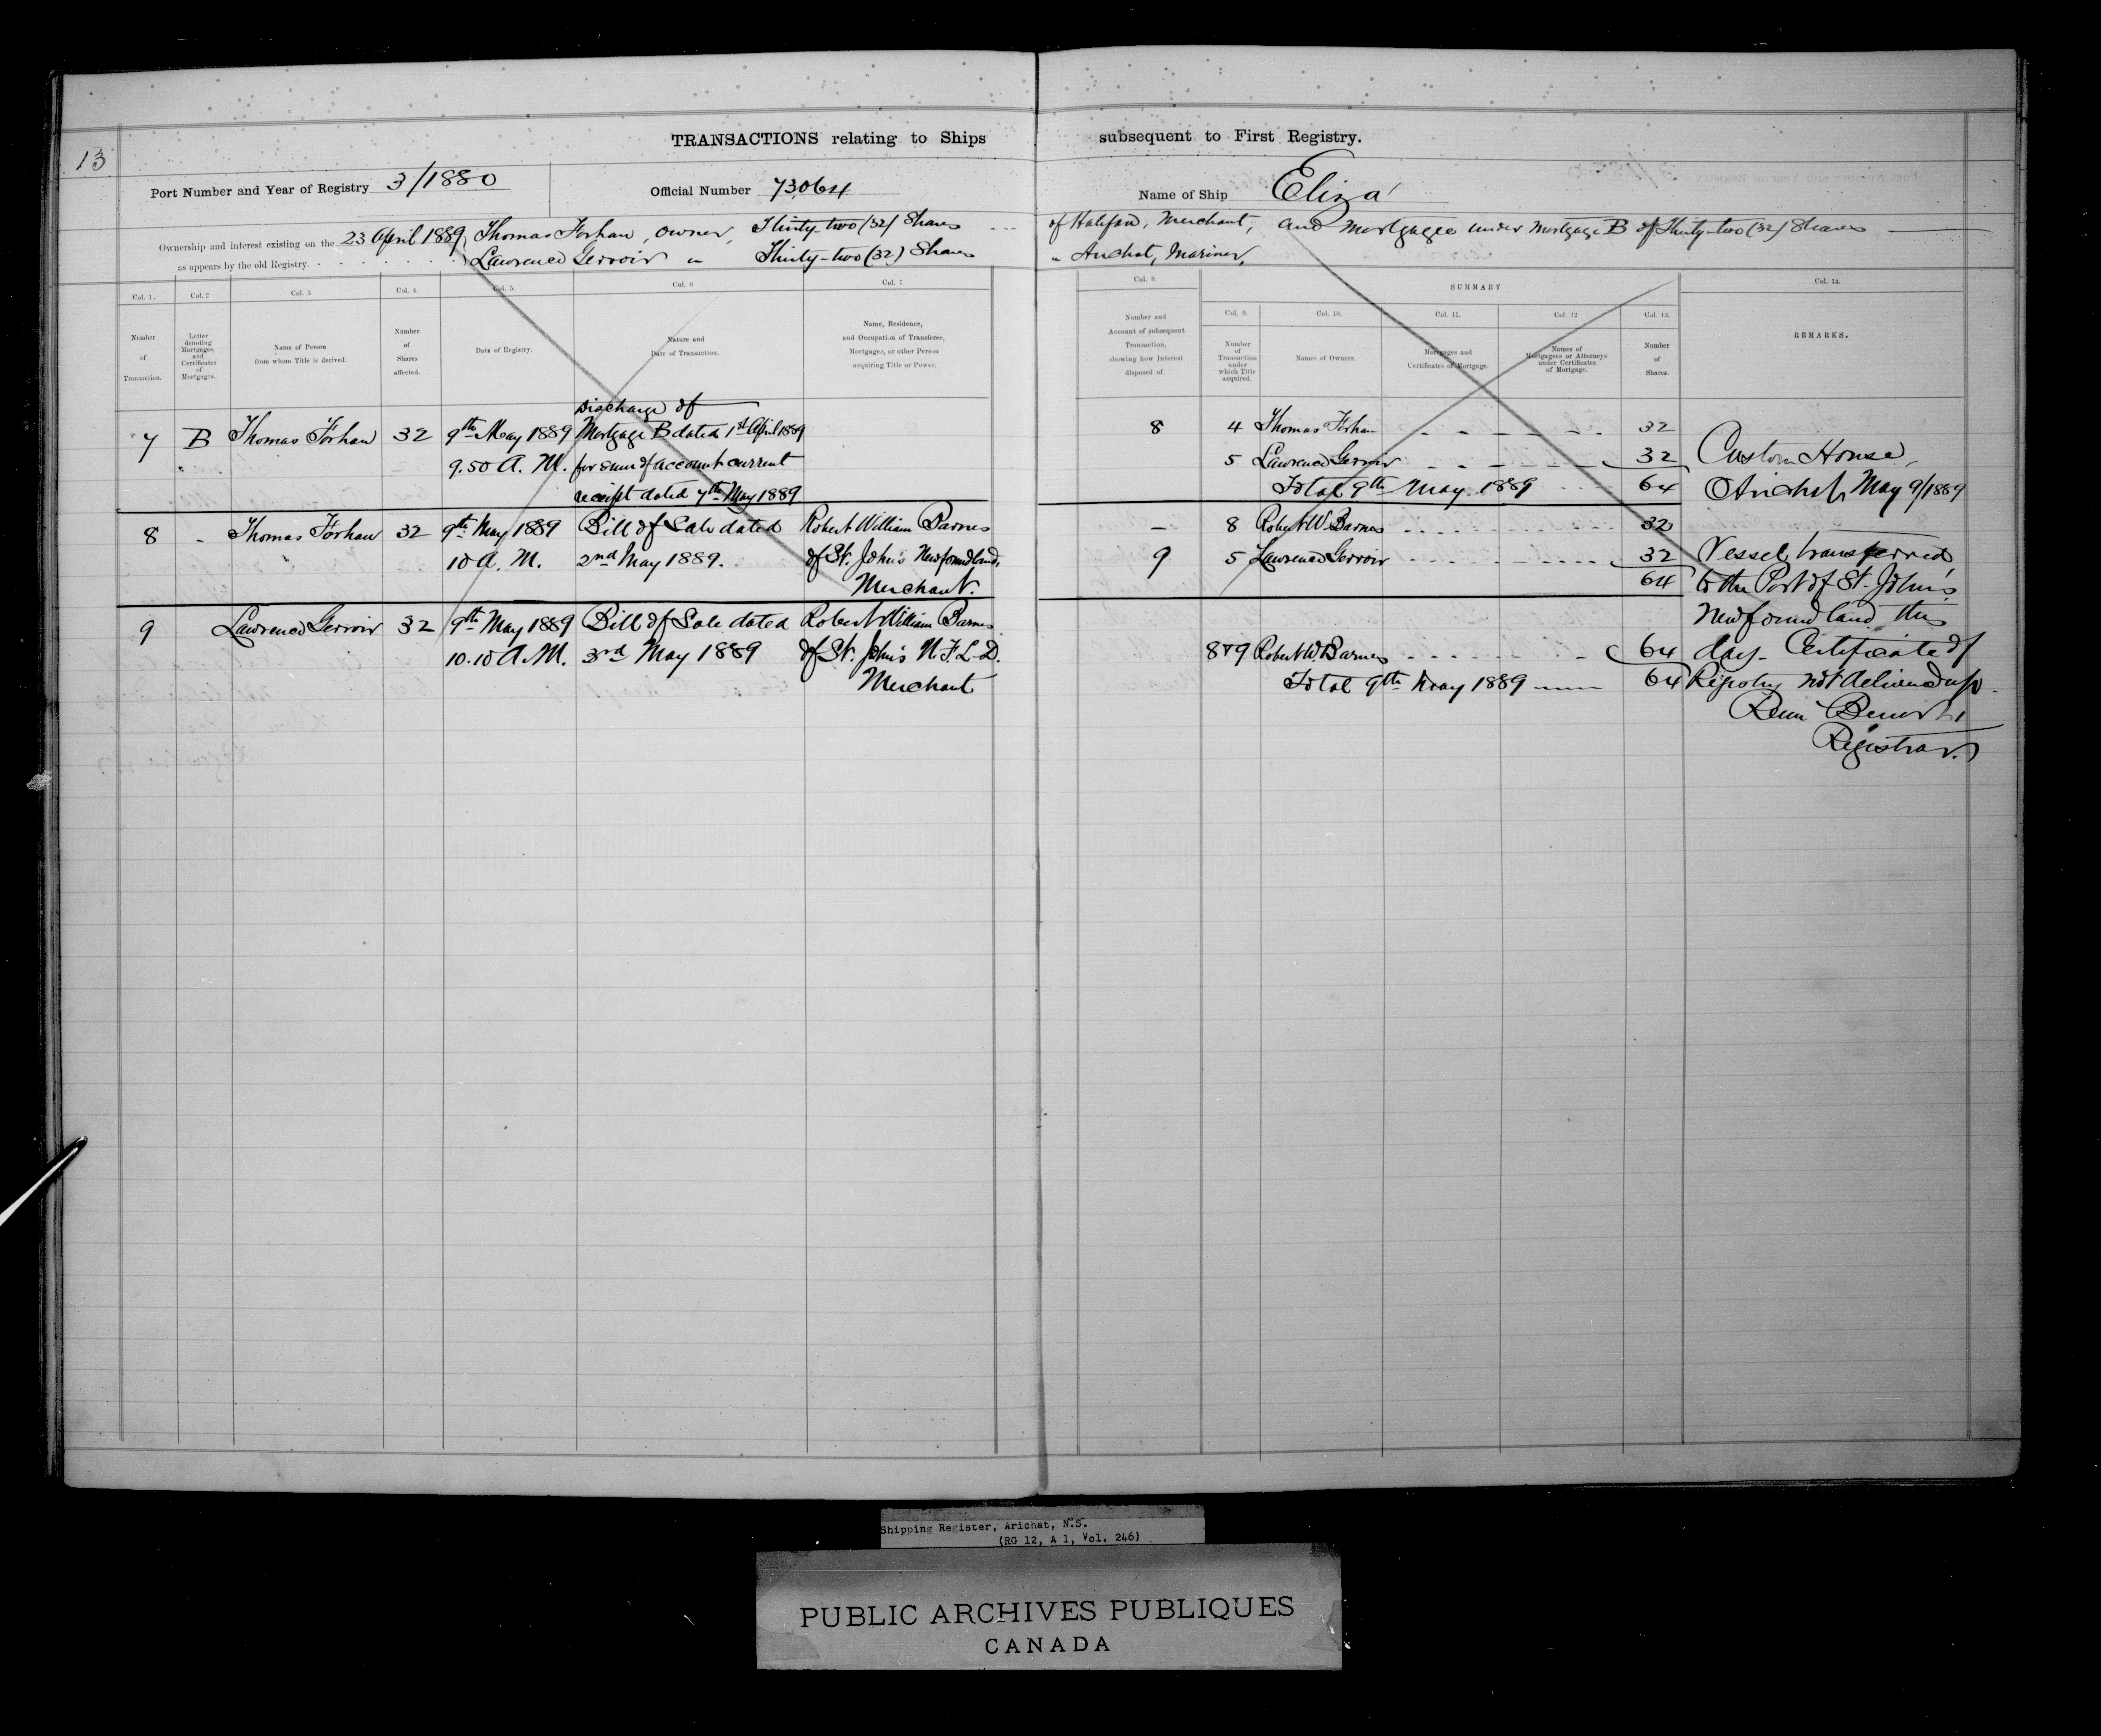 TRANSACTIONS relating to Ships subsequent to First Registry.
13
Port Number and Year of Registry 3/1880 Official Number 73064 Name of Ship Eliza
Ownership and interest existing on the 23 April 1889 Thomas Forhan, owner, Thirty-two (32) Shares of Halifax, Merchant, and Mortgagee under Mortgage B of Thirty-two (32) Shares
as appears by the old Registry. Lawrence Gerroir " Thirty-two (32) Shares " Arichat, Mariner,
Col. 1. Col. 2 Col. 3 Col. 4. Col. 5. Col. 6 Col. 7 Col. 8. SUMMARY Col. 14.
Col. 9. Col. 10. Col. 11. Col. 12. Col. 13.
Number of Transaction.
Letter denoting Mortgages, and Certificates of Mortgages.
Name of Person from whom Title is derived.
Number of Shares affected.
Date of Registry.
Nature and Date of Transaction.
Name, Residence, and Occupation of Transferee, Mortgagee, or other Person acquiring Title or Power.
Number and Account of subsequent Transaction, showing how Interest disposed of.
Number of Transaction under which Title acquired.
Names of Owners.
Mortgages and Certificates of Mortgage.
Names of Mortgagees or Attorneys under Certificates of Mortgage.
Number of Shares.
REMARKS.
Discharge of
7 B Thomas Forhan 32 9th May 1889 Mortgage B dated 1st April 1889
9.50 A. M. for sum of account current
receipt dated 7th May 1889
8 - Thomas Forhan 32 9th May 1889 Bill of Sale dated Robert William Barnes
10 A. M. 2nd May 1889. of St. John's Newfoundland,
Merchant.
9 Lawrence Gerroir 32 9th May 1889 Bill of Sale dated Robert William Barnes
10.10 A.M. 3rd May 1889 of St. John's N.F.L.D.
Merchant
8 4 Thomas Forhan 32
5 Lawrence Gerroir 32
Total 9th May 1889 64
- 8 Robert W. Barnes 32
9 5 Lawrence Gerroir 32
64
8 & 9 Robert W. Barnes 64
Total 9th May 1889 64
Custom House,
Arichat, May 9/1889
Vessel transferred
to the Port of St. John's
Newfoundland this
day. Certificate of
Registry not delivered up.
Benoit
Registrar.
Shipping Register, Arichat, N.S.
(RG 12, A 1, Vol. 246)
PUBLIC ARCHIVES PUBLIQUES
CANADA